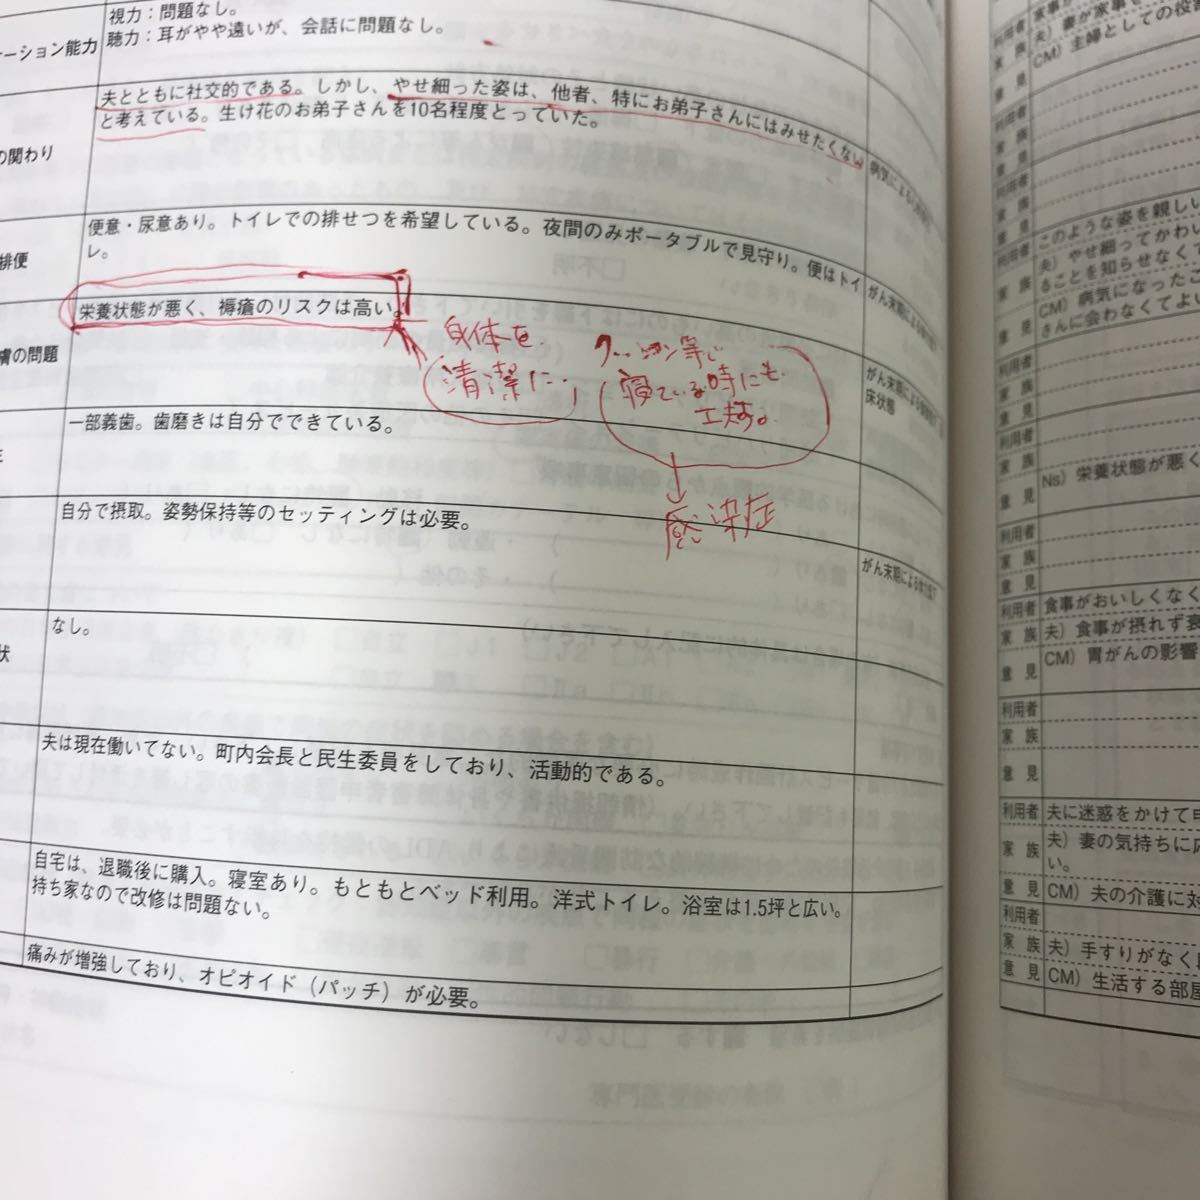 視力：問題なし。
ーション能力
聴力：耳がやや遠いが、会話に問題なし。
夫とともに社交的である。しかし、やせ細った姿は、他者、特にお弟子さんにはみせたくない
と考えている。生け花のお弟子さんを10名程度とっていた。
の関わり
便意・尿意あり。トイレでの排せつを希望している。夜間のみポータブルで見守り。便はトイ
レ。
排便
栄養状態が悪く、褥瘡のリスクは高い。
膚の問題
身体を
清潔に.
クッション等で
寝ている時にも
工夫する
感染症
がん末期による
床状態
一部義歯。歯磨きは自分でできている。
自分で摂取。姿勢保持等のセッティングは必要。
なし。
状
夫は現在働いてない。町内会長と民生委員をしており、活動的である。
自宅は、退職後に購入。寝室あり。もともとベッド利用。洋式トイレ。浴室は1.5坪と広い。
持ち家なので改修は問題ない。
痛みが増強しており、オピオイド（パッチ）が必要。
利用者
家族 夫）妻が家事を
意見 CM）主婦としての役割
利用者
家族
意見
利用者
家族
意見
利用者 このような姿を親しい
家族 夫）やせ細ってかわい
ることを知らせなくて
意見 CM）病気になった
さんに会わなくてよい
利用者
家族
意見
利用者
家族
意見 Ns）栄養状態が悪く
利用者
家族
意見
利用者 食事がおいしくなく
家族 夫）食事が摂れず衰
意見 CM）胃がんの影響
利用者
家族
意見
利用者 夫に迷惑をかけて申
家族 夫）妻の気持ちに応
い。
意見 CM）夫の介護に対
利用者
家族 夫）手すりがなく
意見 CM）生活する部屋